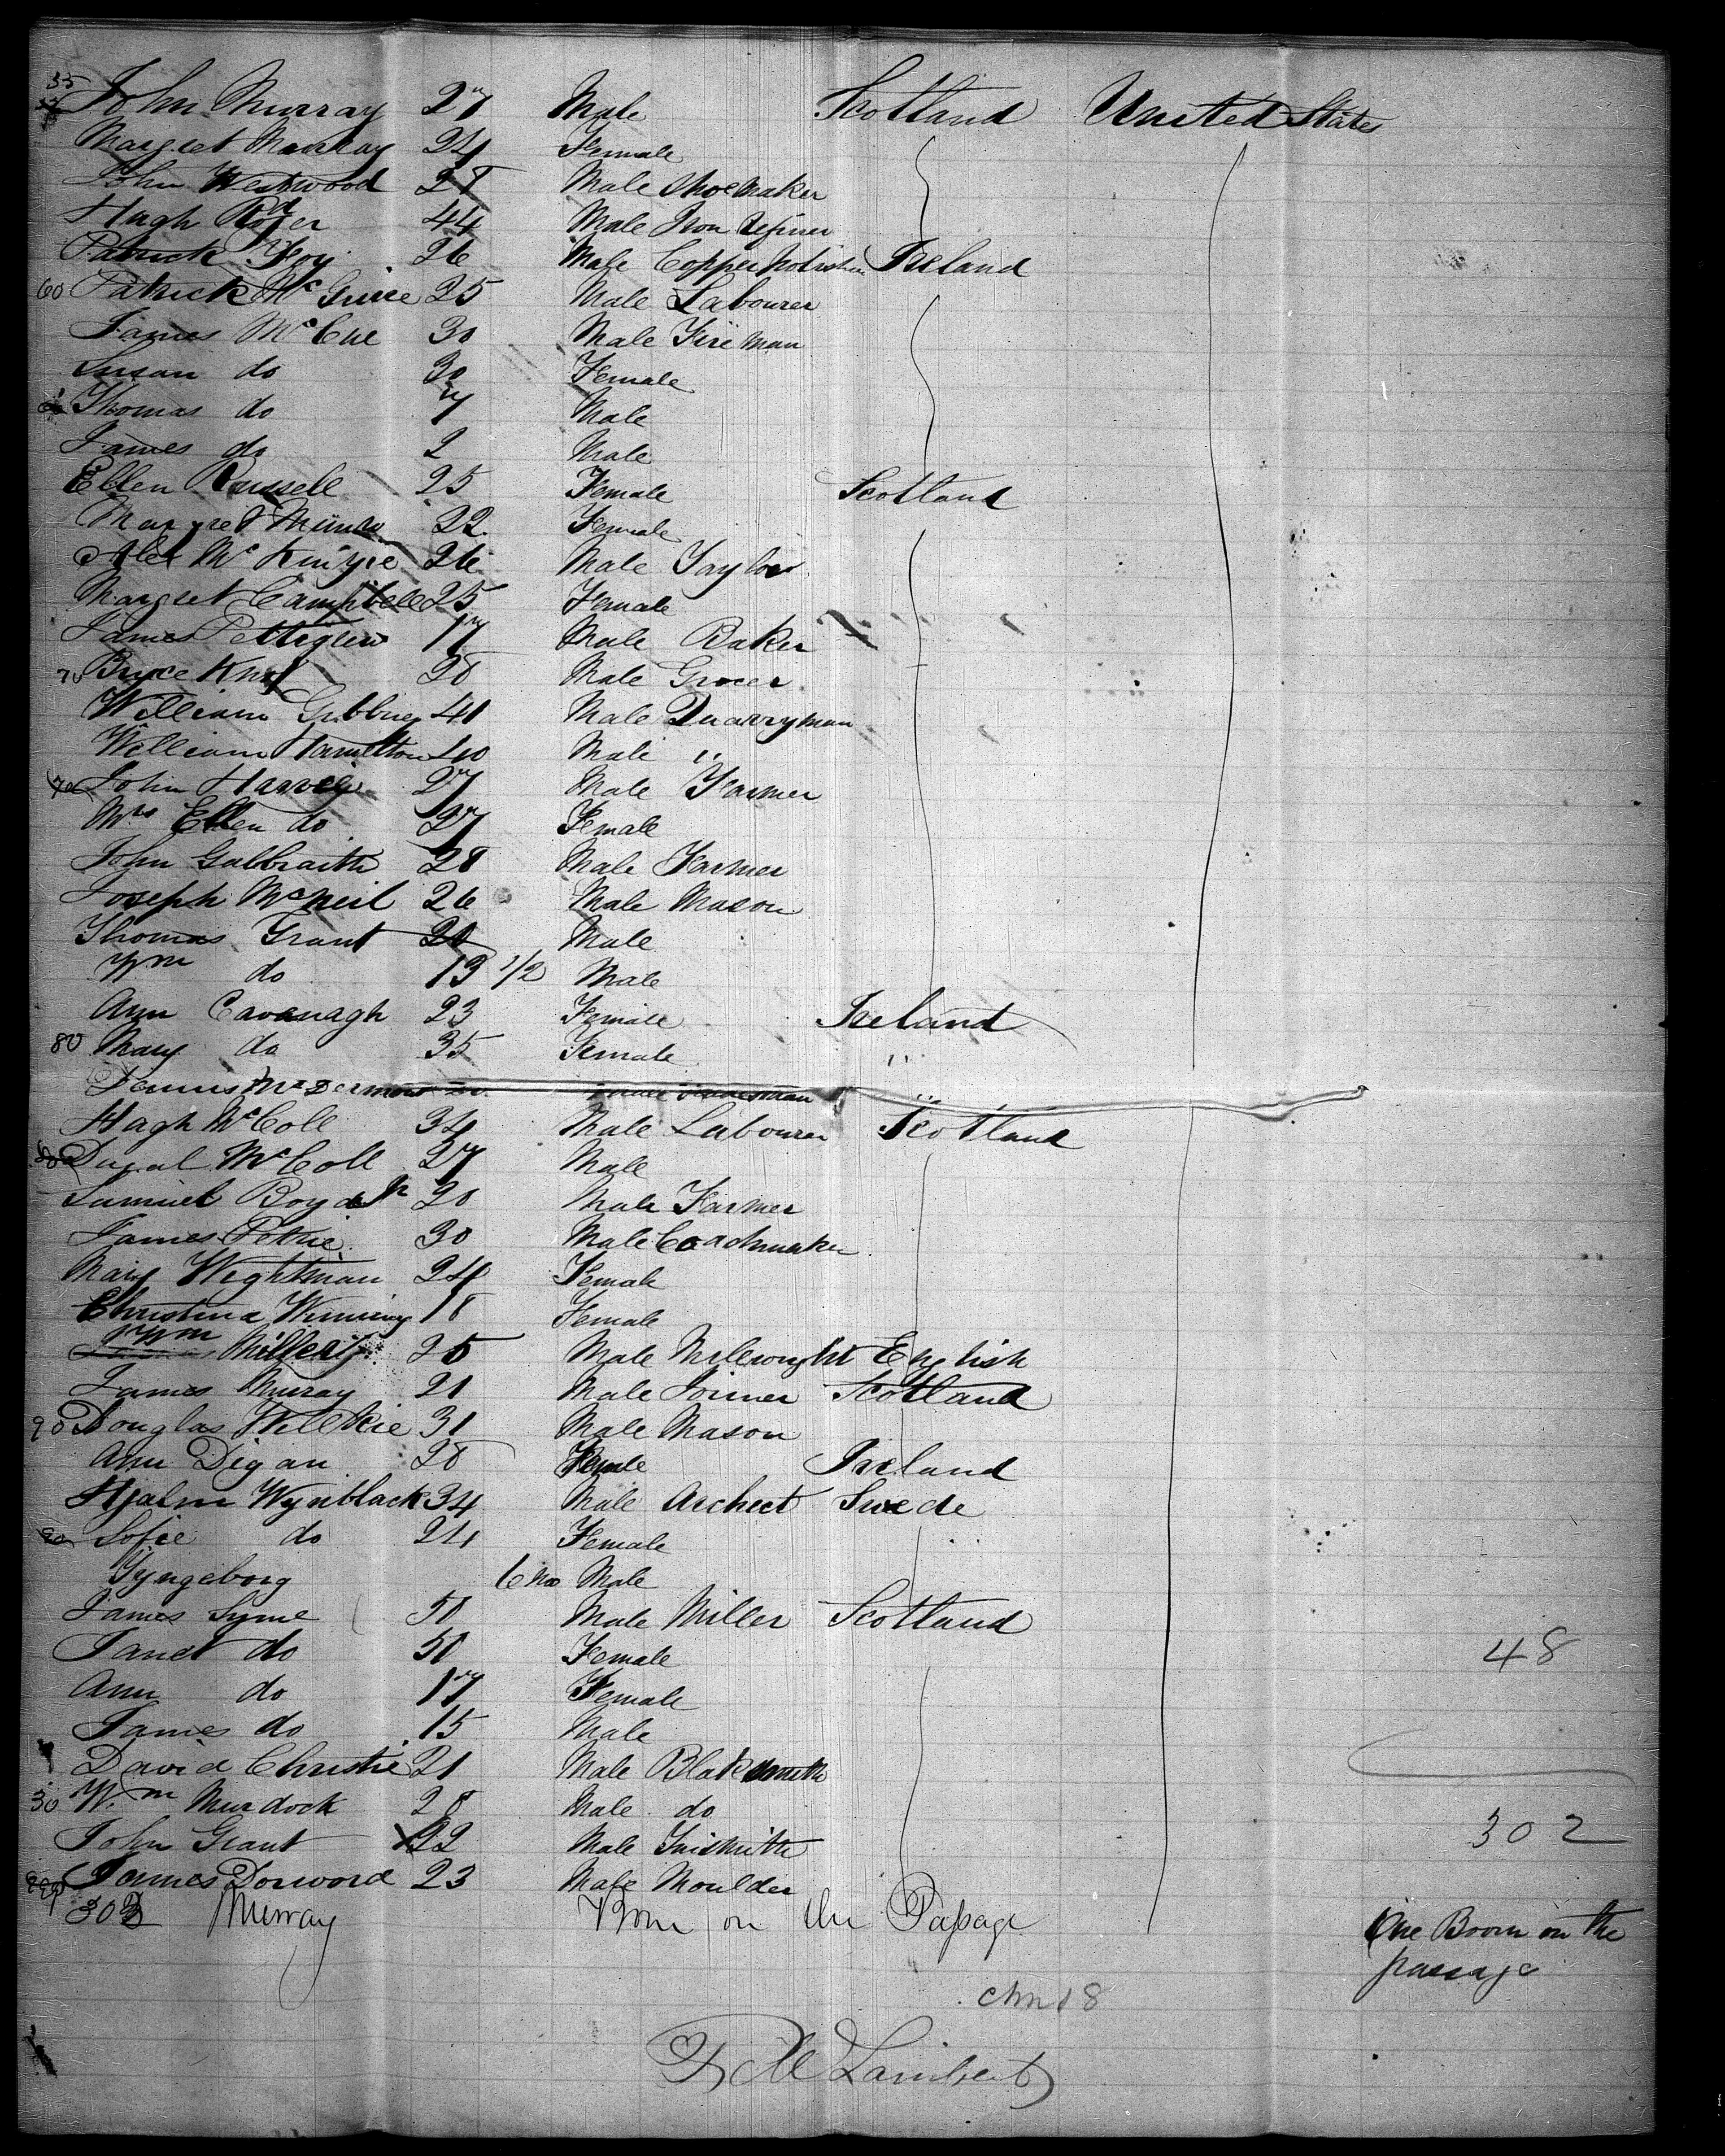 55 John Murray 27 Male Scotland United States
Margret Murray 24 Female
John Westwood 28 Male Shoemaker
Hugh 44 Male Iron Refiner
Patrick Foy 26 Male Copper Polisher Ireland
60 Patrick McGuire 25 Male Labourer
James McCue 30 Male Fire Man
Susan do 30 Female
Thomas do 7 Male
James do 2 Male
Ellen Russell 25 Female Scotland
Margret Munro 22 Female
Alex McKinzie 26 Male Taylor
Margret Campbell 25 Female
James Pettigrew 17 Male Baker
70 Bryce Knox 28 Male Grocer
William Gibbney 41 Male Quarryman
William Hamilton 40 Male "
John Harvey 27 Male Farmer
Mrs Ellen do 27 Female
John Galbraith 28 Male Farmer
Joseph McNeil 26 Male Mason
Thomas Grant 20 Male
Wm do 13 1/2 Male
Ann Cavanagh 23 Female Ireland
80 Mary do 35 Female "
Dennis McDermott
Hugh McColl 34 Male Labourer Scotland
Dugal McColl 27 Male
Samuel Boyd Jr 20 Male Farmer
James Petrie 30 Male Coachmaker
Mary Wightman 24 Female
Christina Winning 18 Female
Wm Miller 25 Male Millwright English
James Muray 21 Male Joiner Scotland
90 Douglas Wilkie 31 Male Mason
Ann Digan 28 Female Ireland
Hjalm Wynblack 34 Male Archect Swede
Sofie do 24 Female
Yyngeborg 6 mo Male
James Syme 50 Male Miller Scotland
Janet do 50 Female
48
Ann do 17 Female
James do 15 Male
David Christie 21 Male Blaksmith
30 Wm Murdock 28 Male do
John Grant 22 Male Tinsmith
302
James Dorword 23 Male Moulder
303 Murray Born on the Passage
One Boorn on the
passage
18
Lambert